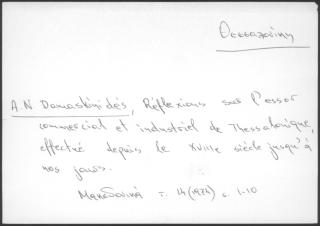 Θεσσαλονίκη
A.N Damaskinidés, Réflexions sur l'essor
commercial et industriel de Thessalonique,
effectué depuis le XVIIIe siècle jusqu'à
nos jours.
Μακεδονικά τ. 14 (1974) σ. 1-10